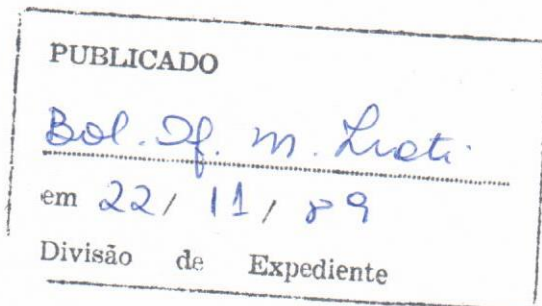 PUBLICADO
Bol. Of. M. Irati
em 22/ 11/ 89
Divisão de Expediente